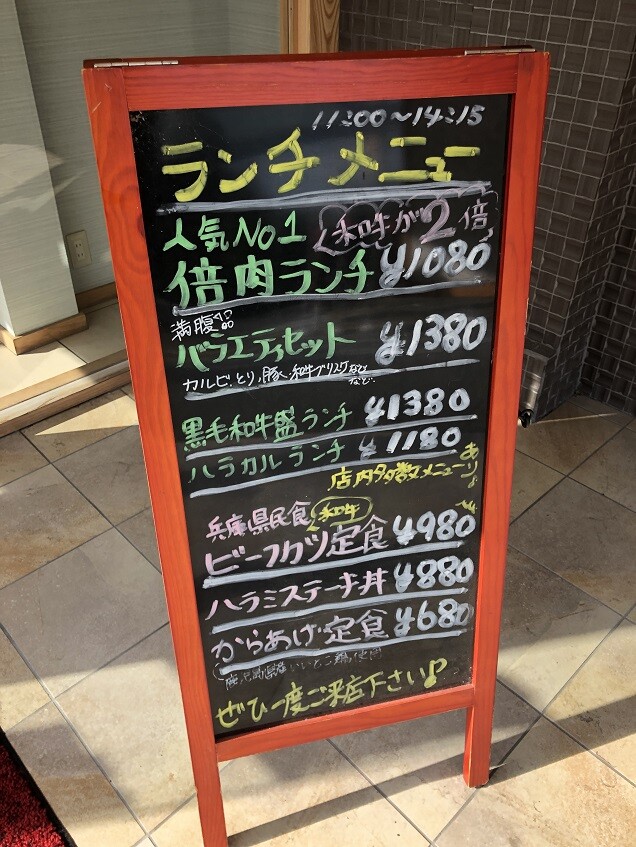 11:00～14:15
ランチメニュー
人気No1 和牛が2倍
倍肉ランチ ¥1080
満腹
バラエティセット ¥1380
カルビ、とり、豚、和牛 など
黒毛和牛盛ランチ ¥1380
ハラカルランチ ¥1180
店内多数メニューあり♪
兵庫県民食 和牛
ビーフカツ定食 ¥980
ハラミステーキ丼 ¥880
からあげ定食 ¥680
鹿児島県産 使用
ぜひ一度ご来店下さい♪